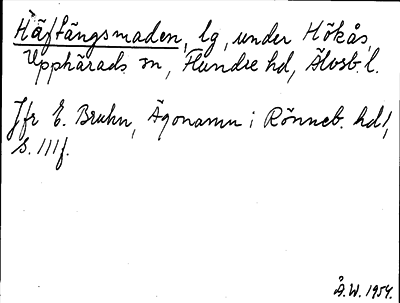 Häftängsmaden, lg, under Hökås,
Upphärads sn, Flundre hd, Älvsb. l.
Jfr E. Bruhn, Ägonamn i Rönneb. hd,
s. 111 f.
Å.W. 1954.